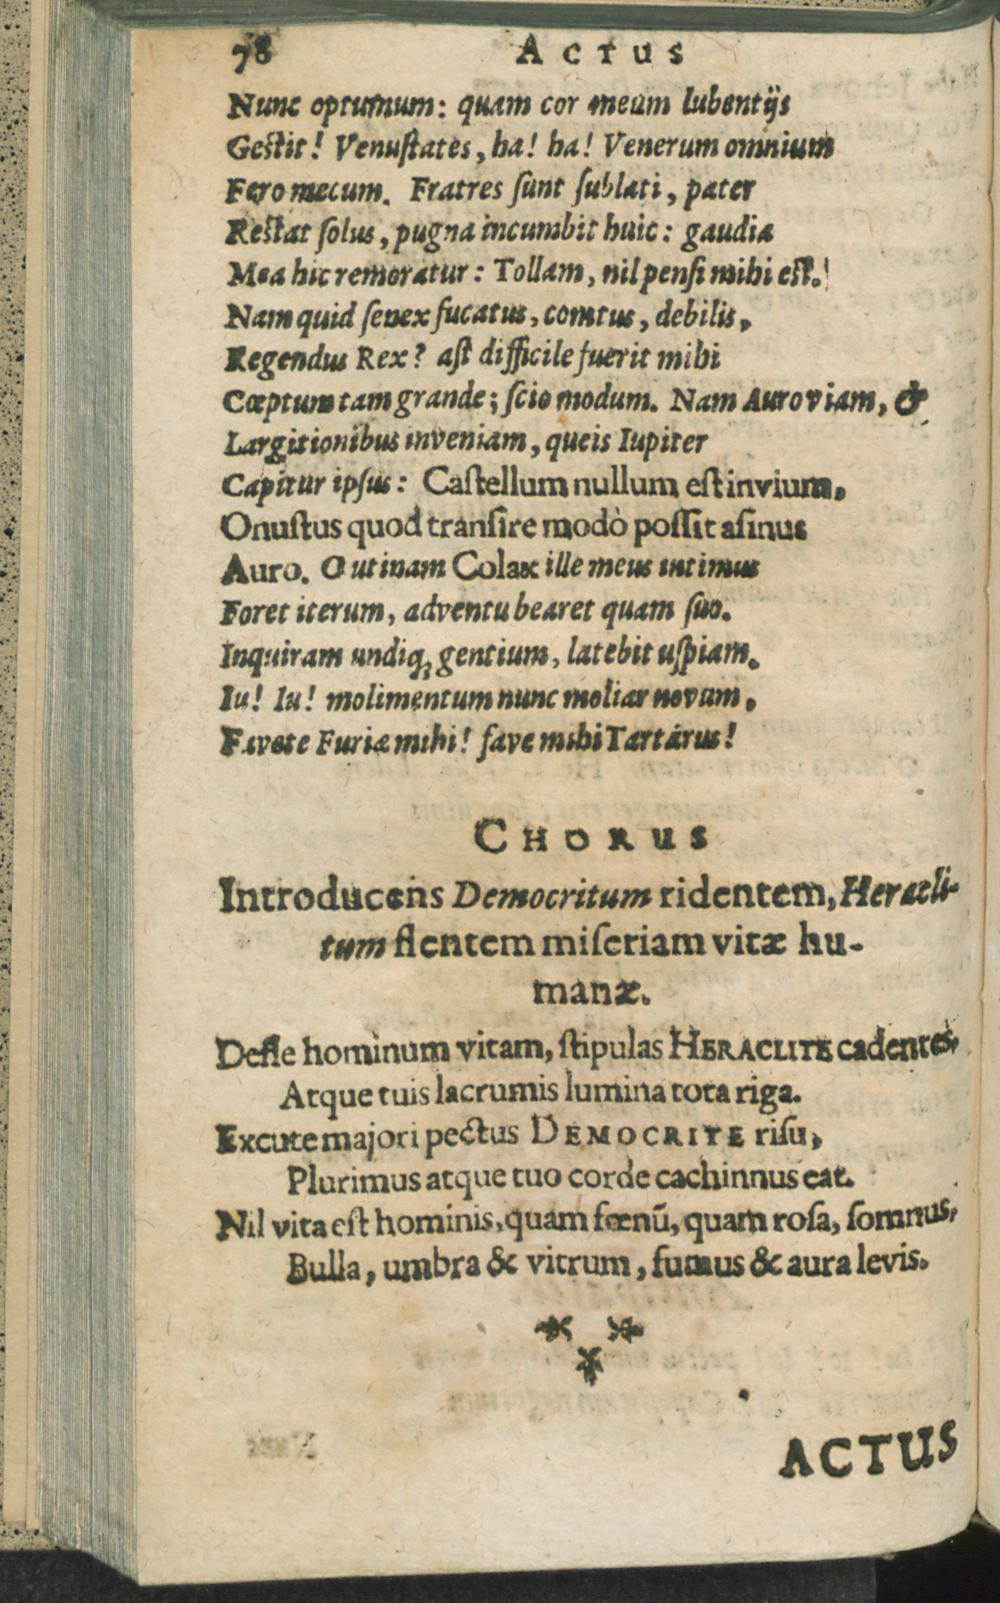 78 ACTUS
Nunc optumum: quam cor meum lubentijs
Gestit! Venuſtates, ha! ha! Venerum omnium
Fero mecum. Fratres ſunt ſublati, pater
Restat ſolus, pugna incumbit huic: gaudia
Mea hic remoratur: Tollam, nil penſi mihi est.!
Nam quid ſenex fucatus, comtus, debilis,
Regendus Rex? aſt difficile fuerit mihi
Cœptum tam grande; ſcio modum. Nam Auro viam, &
Largitionibus inveniam, queis Iupiter
Capitur ipſus: Caſtellum nullum eſt invium,
Onuſtus quod tranſire modò poſſit aſinus
Auro. O utinam Colax ille meus intimus
Foret iterum, adventu bearet quam ſuo.
Inquiram undiq; gentium, latebit uſpiam.
Iu! Iu! molimentum nunc moliar novum,
Favete Furiæ mihi! fave mihi Tartárus!
CHORUS
Introducens Democritum ridentem, Heracli-
tum flentem miſeriam vitæ hu-
manæ.
Defle hominum vitam, ſtipulas HERACLITE cadentes,
Atque tuis lacrumis lumina tota riga.
Excute majori pectus DEMOCRITE riſu,
Plurimus atque tuo corde cachinnus eat.
Nil vita eſt hominis, quam fœnū, quam roſa, ſomnus,
Bulla, umbra & vitrum, fumus & aura levis.
ACTUS